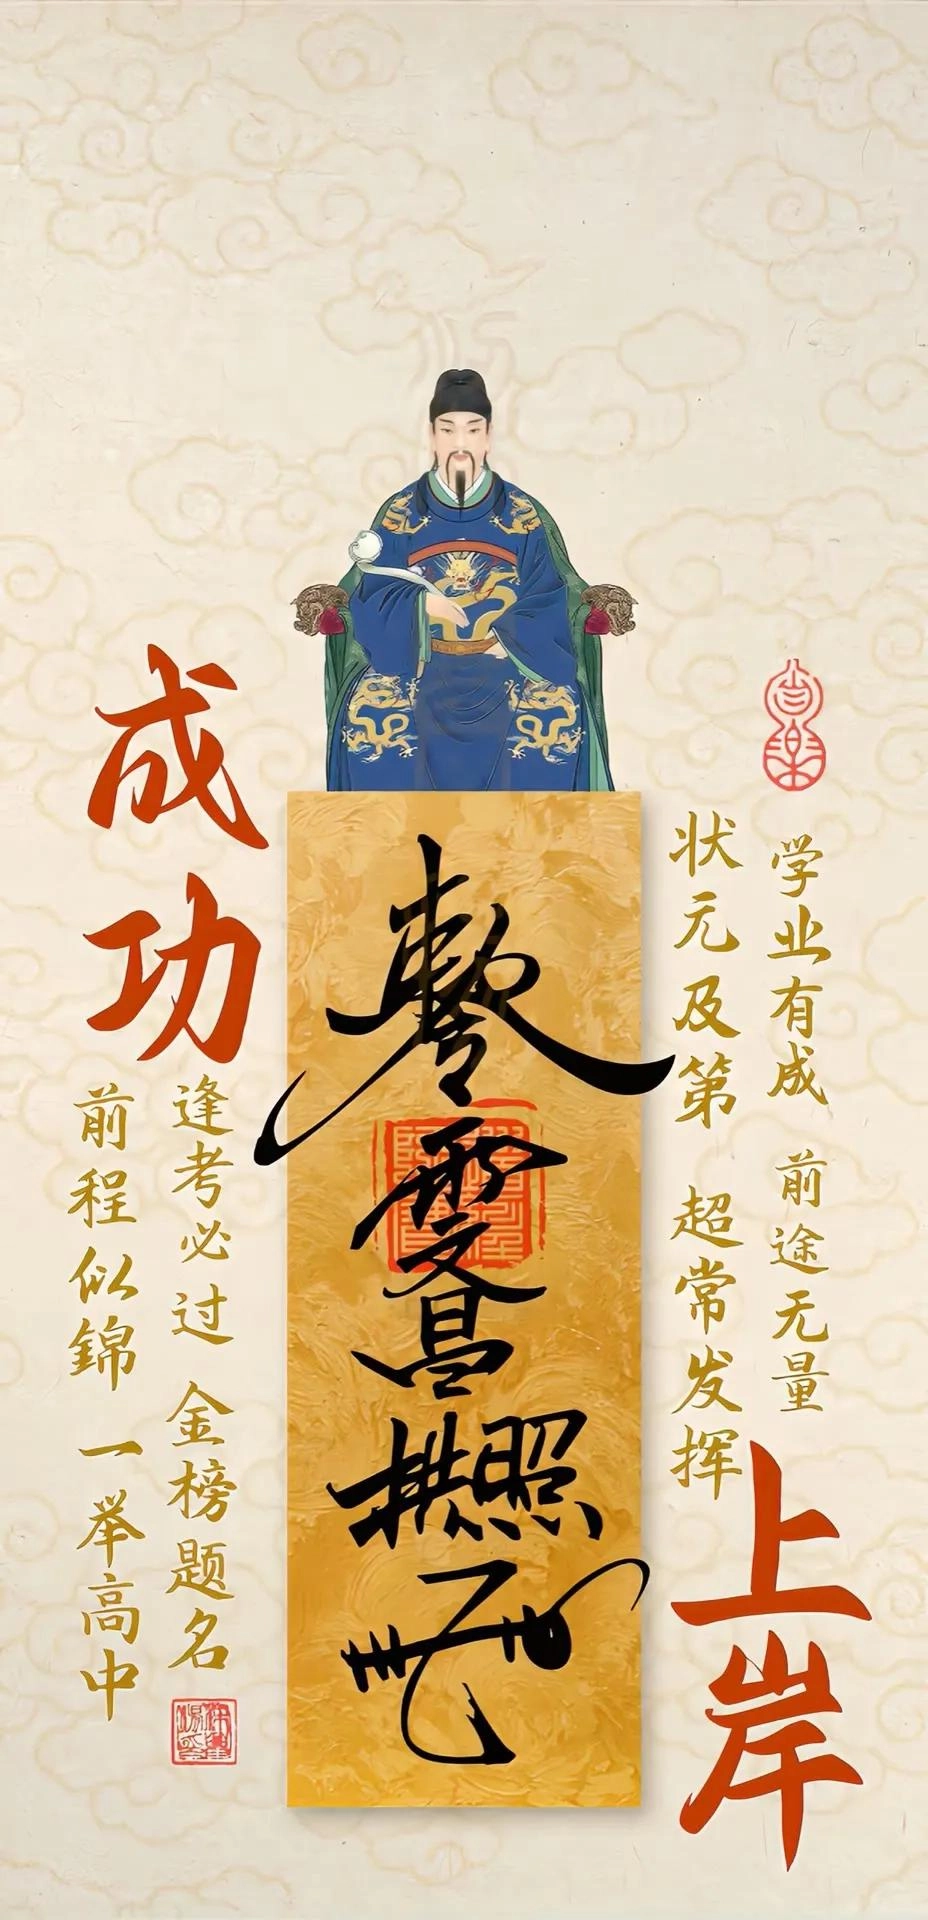 成功
上岸
学业有成 前途无量
状元及第 超常发挥
文昌拱照
逢考必过 金榜题名
前程似錦 一举高中